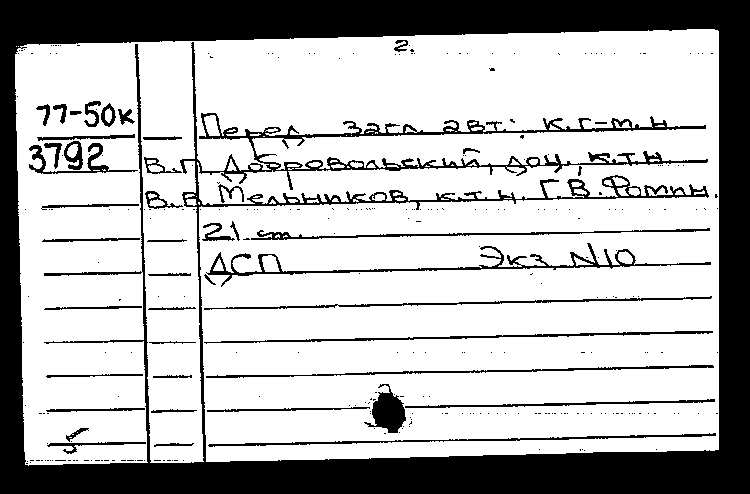 2.
77-50к Перед загл. авт.: к.г-м.н.
3792 В.П. Добровольский, доц., к.т.н.
В.В. Мельников, к.т.н. Г.В. Фомин.
21 см.
ДСП Экз. N10
5